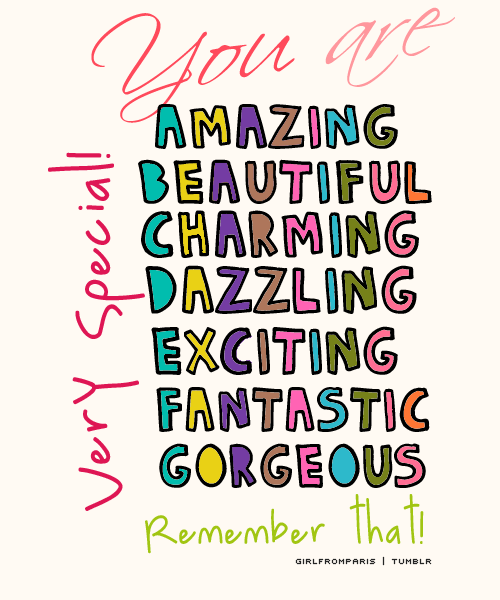 You are
AMAZING
BEAUTIFUL
CHARMING
DAZZLING
EXCITING
FANTASTIC
GORGEOUS
Very Special!
Remember that!
GIRLFROMPARIS | TUMBLR